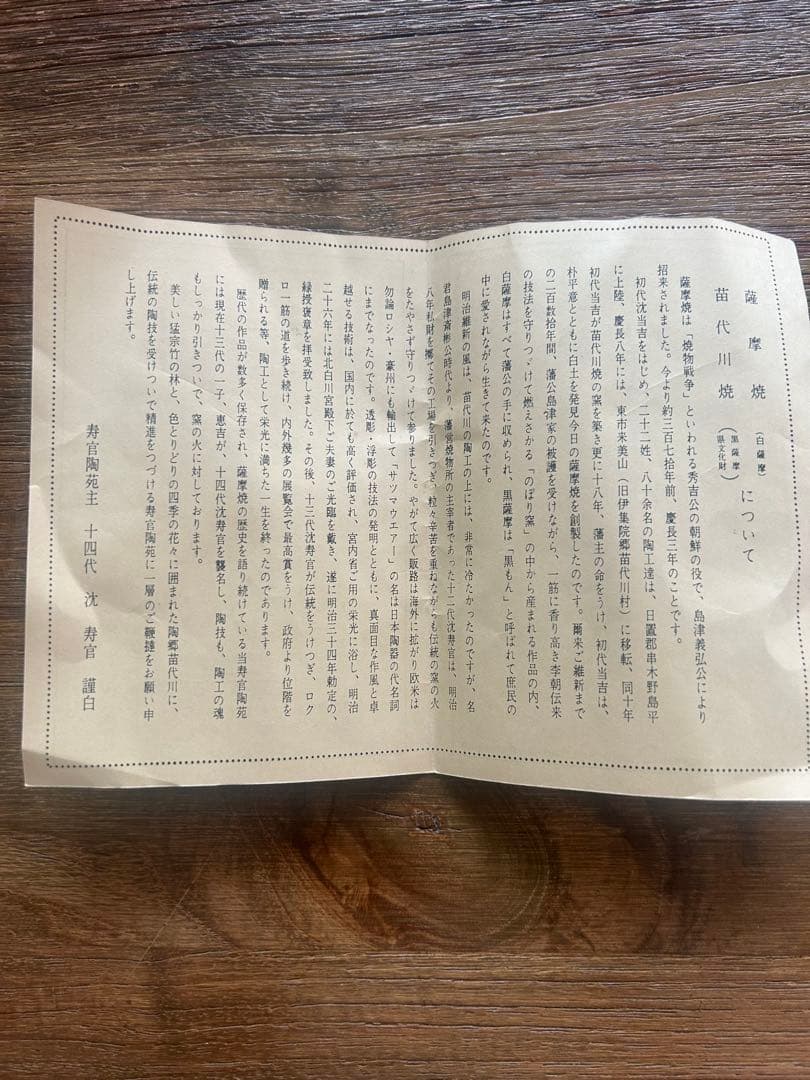 薩摩焼（白薩摩）
苗代川焼（黒薩摩 県文化財）について
薩摩焼は「焼物戦争」といわれる秀吉公の朝鮮の役で、島津義弘公により
招来されました。今より約三百七拾年前、慶長三年のことです。
初代沈当吉をはじめ、二十二姓、八十余名の陶工達は、日置郡串木野島平
に上陸、慶長八年には、東市来美山（旧伊集院郷苗代川村）に移転、同十年
初代当吉が苗代川焼の窯を築き更に十八年、藩主の命をうけ、初代当吉は、
朴平意とともに白土を発見今日の薩摩焼を創製したのです。爾来ご維新まで
の二百数拾年間、藩公島津家の被護を受けながら、一筋に香り高き李朝伝来
の技法を守りつゞけて燃えさかる「のぼり窯」の中から産まれる作品の内、
白薩摩はすべて藩公の手に収められ、黒薩摩は「黒もん」と呼ばれて庶民の
中に愛されながら生きて来たのです。
明治維新の風は、苗代川の陶工の上には、非常に冷たかったのですが、名
君島津斎彬公時代より、藩営焼物所の主宰者であった十二代沈寿官は、明治
八年私財を擲てその工場を引きつぎ、粒々辛苦を重ねながらも伝統の窯の火
をたやさず守りつゞけて参りました。やがて広く販路は海外に拡がり欧米は
勿論ロシヤ・豪州にも輸出して「サツマウエアー」の名は日本陶器の代名詞
にまでなったのです。透彫・浮彫の技法の発明とともに、真面目な作風と卓
越せる技術は、国内に於ても高く評価され、宮内省ご用の栄光に浴し、明治
二十六年には北白川宮殿下ご夫妻のご光臨を戴き、遂に明治三十四年勅定の、
緑授褒章を拝受致しました。その後、十三代沈寿官が伝統をうけつぎ、ロク
ロ一筋の道を歩き続け、内外幾多の展覧会で最高賞をうけ、政府より位階を
贈られる等、陶工として栄光に満ちた一生を終ったのであります。
歴代の作品が数多く保存され、薩摩焼の歴史を語り続けている当寿官陶苑
には現在十三代の一子、恵吉が、十四代沈寿官を襲名し、陶技も、陶工の魂
もしっかり引きついで、窯の火に対しております。
美しい猛宗竹の林と、色とりどりの四季の花々に囲まれた陶郷苗代川に、
伝統の陶技を受けついで精進をつづける寿官陶苑に一層のご鞭撻をお願い申
し上げます。
寿官陶苑主 十四代 沈 寿官 謹白